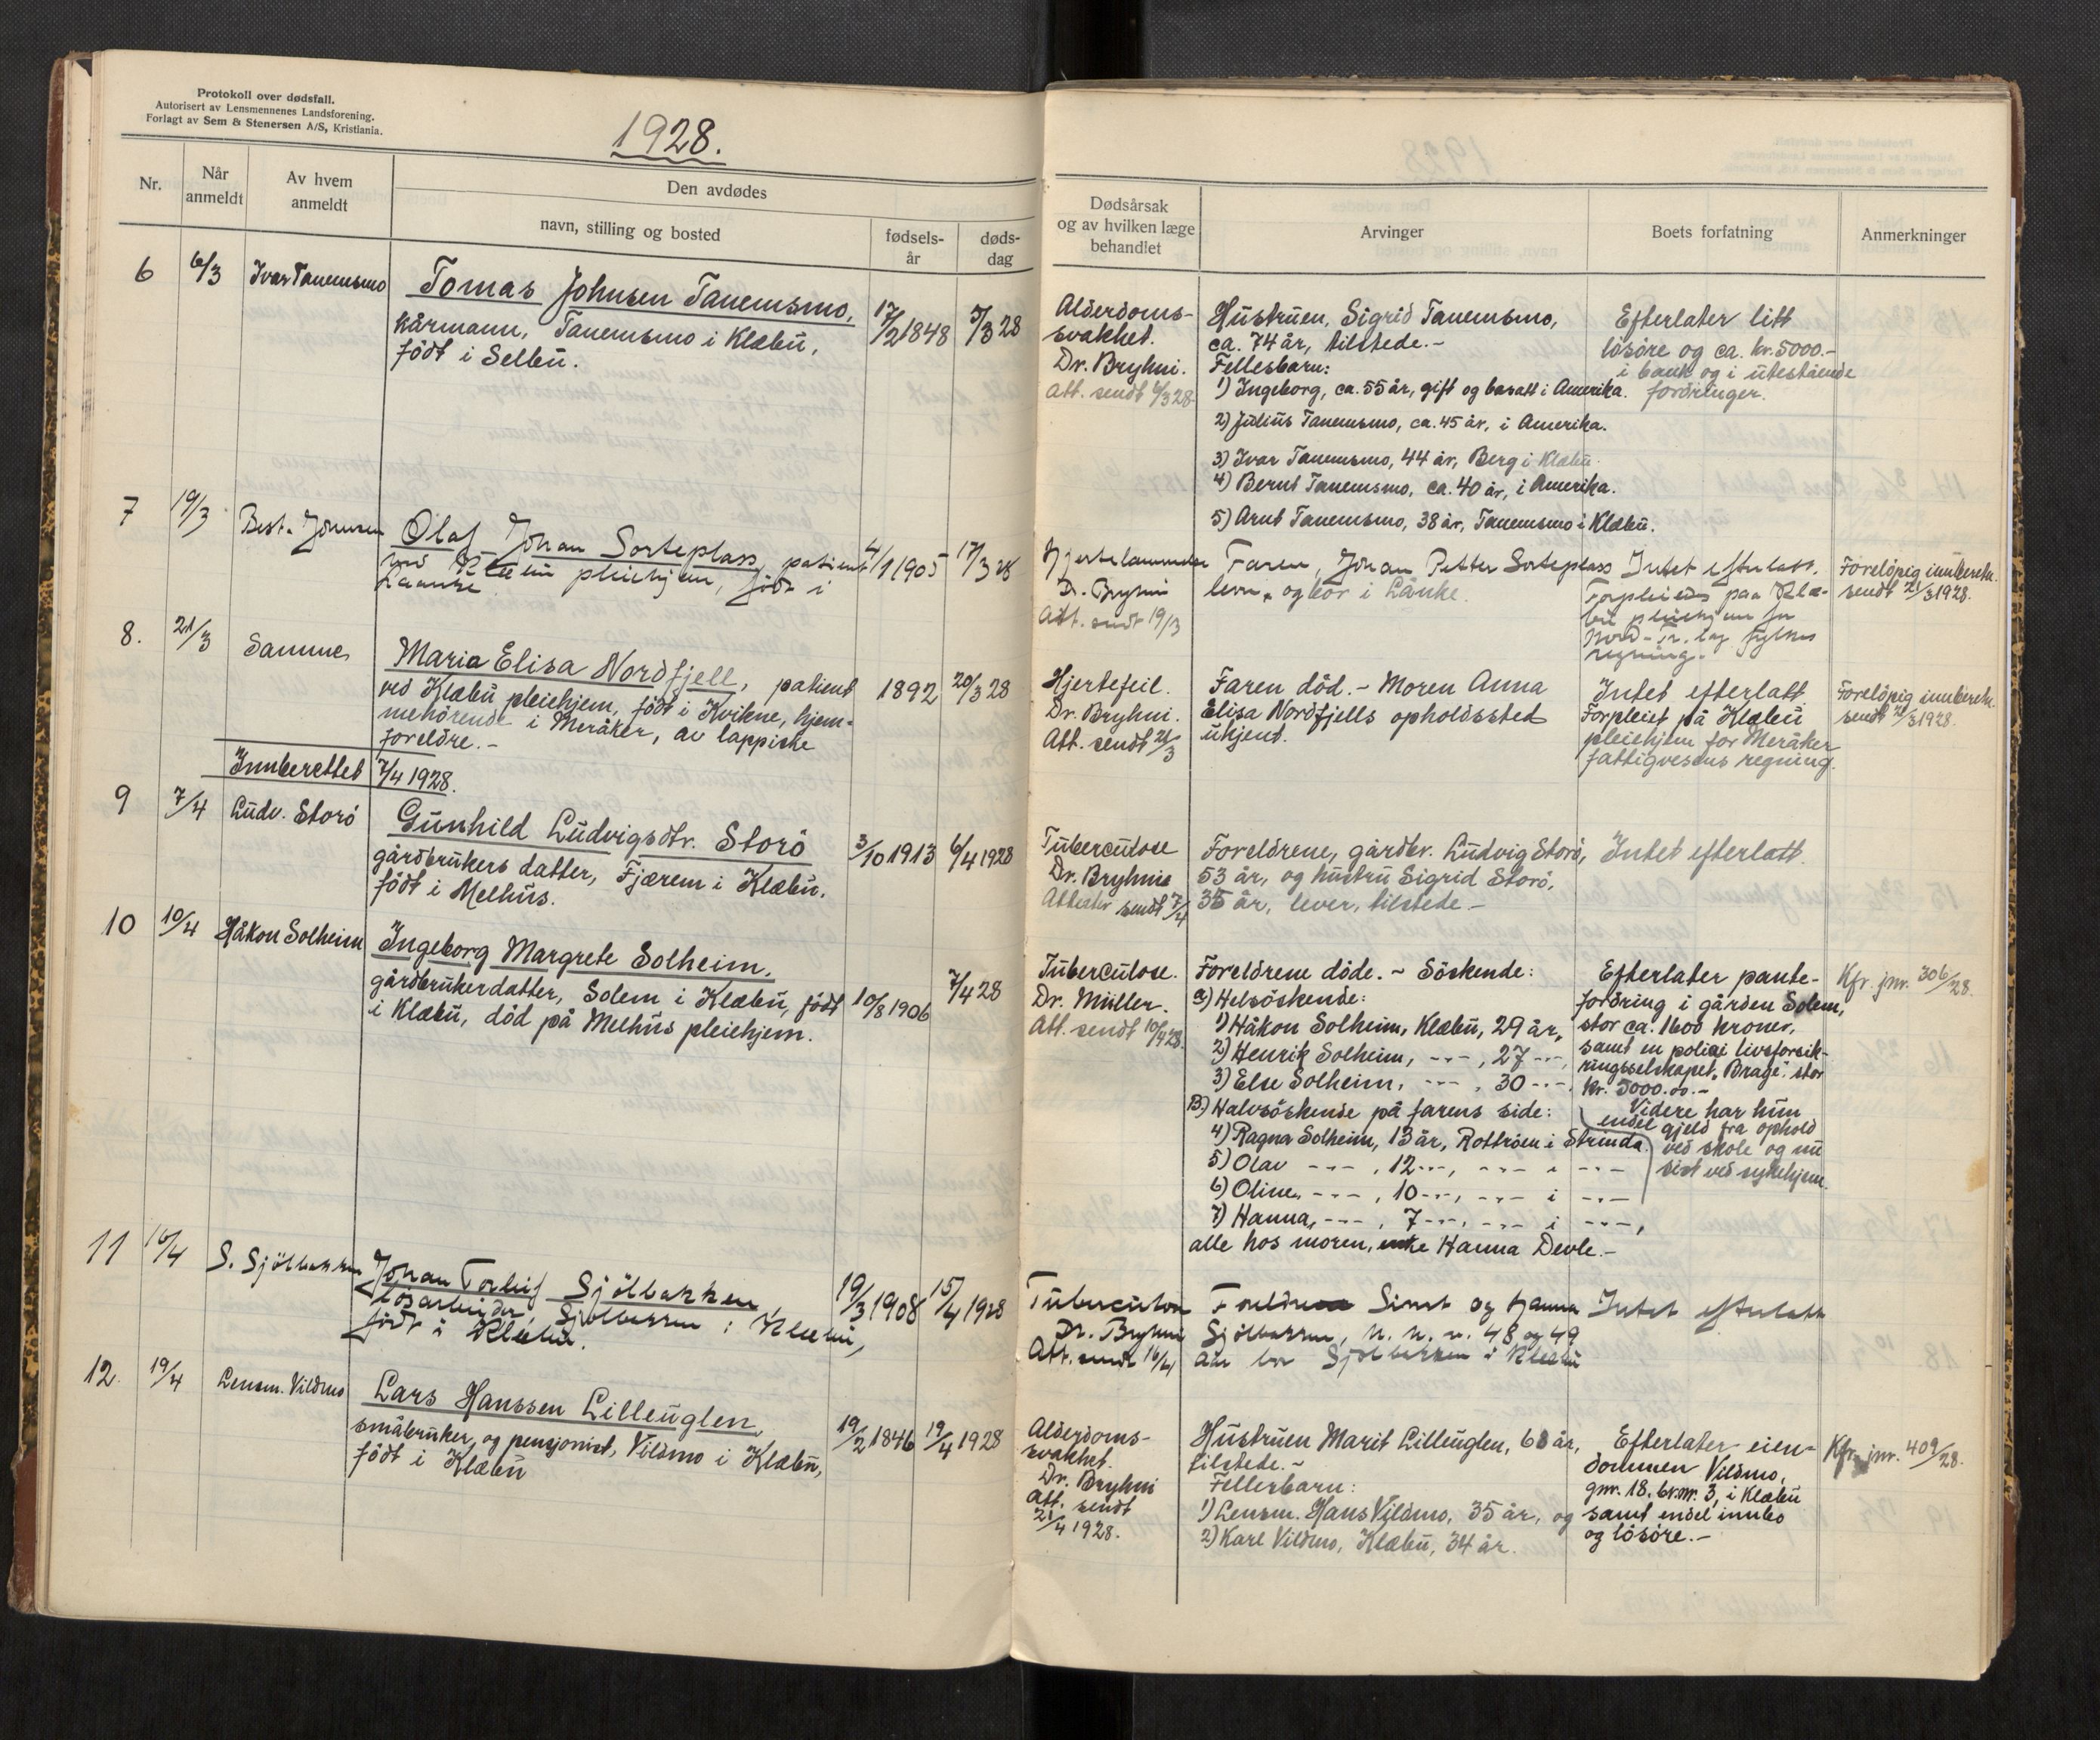 Protokoll over dødsfall.
Autorisert av Lensmennenes Landsforening.
Forlagt av Sem & Stenersen A/S, Kristiania.
1928.
Nr.
Når
anmeldt
Av hvem
anmeldt
Den avdødes
navn, stilling og bosted
fødsels-
år
døds-
dag
Dødsårsak
og av hvilken læge
behandlet
Arvinger
Boets forfatning
Anmerkninger
6
6/3
Ivar Tanemsmo
Tomas Johnsen Tanemsmo,
kårmann, Tanemsmo i Klæbu,
födt i Selbu.
17/2 1848
5/3 28
Alderdoms-
svakhet.
Dr. Bryhni.
Att. sendt 6/3 28
Hustruen, Sigrid Tanemsmo,
ca. 74 år, tilstede.-
Fellesbarn:
1) Ingeborg, ca. 55 år, gift og bosatt i Amerika.
2) Julius Tanemsmo, ca. 45 år, i Amerika.
3) Ivar Tanemsmo, 44 år, Berg i Klæbu.
4) Bernt Tanemsmo, ca. 40 år, i Amerika.
5) Arnt Tanemsmo, 38 år, Tanemsmo i Klæbu.
Efterlater litt
lösöre og ca. kr. 5000.-
i bank og i utestående
fordringer.
7
19/3
Best. Jönsson
Olaf Johan Sorteplass, patient
ved Klæbu pleiehjem, födt i
Laanke
4/1 1905
17/3 28
Hjertelammelse
Dr. Bryhni
Att. sendt 19/3
Faren, Johan Petter Sorteplass
lever og bor i Lånke.
Intet efterlatt.
Forpleiedes paa Klæ-
bu pleiehjem for
Nord-Tr. lag fylkes
regning.
Forelöpig innberetn.
sendt 21/3 1928.
8.
21/3
Samme
Maria Elisa Nordfjell, patient
ved Klæbu pleiehjem, födt i Kvikne, hjem-
mehörende i Meråker, av lappiske
foreldre.-
1892
20/3 28
Hjertefeil.
Dr. Bryhni.
Att. sendt 21/3
Faren död.- Moren Anna
Elisa Nordfjells opholdssted
ukjent.
Intet efterlatt
Forpleiet på Klæbu
pleiehjem for Meråker
fattigvesens regning.
Forelöpig innberetn.
sendt 21/3 1928.
Innberettet 7/4 1928.
9
7/4
Ludv. Storö
Gunhild Ludvigsdtr. Storö
gårdbrukers datter, Fjærem i Klæbu.
födt i Melhus.
3/10 1913
6/4 1928
Tuberculose
Dr. Bryhni
Attester sendt 7/4
Foreldrene, gårdbr. Ludvig Storö,
53 år, og hustru Sigrid Storö,
35 år, lever, tilstede.-
Intet efterlatt.
10
10/4
Håkon Solheim
Ingeborg Margrete Solheim.
gårdbrukerdatter, Solem i Klæbu, födt
i Klæbu, död på Melhus pleiehjem.
10/8 1906
7/4 28
Tuberculose.
Dr. Müller.
Att. sendt 10/4 28.
Foreldrene döde. - Söskende:
a) Helsöskende:
1) Håkon Solheim, Klæbu, 29 år,
2) Henrik Solheim, -"-, 27 -"-,
3) Else Solheim, -"-, 30 -"-.
B) Halvsöskende på farens side:
4) Ragna Solheim, 13 år, Rottröen i Strinda
5) Olav -"-, 12 -"-, -"- i -"-
6) Oline, -"-, 10 -"-, -"- i -"-
7) Hanna, -"-, 7 -"-, -"- i -"-,
alle hos moren, enke Hanna Devle.-
Efterlater pante-
fordring i gården Solem,
stor ca. 1600 kroner,
samt en polise i livsforsik-
ringsselskapet "Brage" stor
kr. 5000.00.-
Videre har hun
endel gjeld fra ophold
ved skole og nu
sist ved sykehjem.
Kfr. jnr. 306/28.
11
16/4
S. Sjölbakken
Johan Torleif Sjölbakken,
lösarbeider, Sjölbakken i Klæbu,
födt i Klæbu.
19/3 1908
15/4 1928
Tuberculose
Dr. Bryhni
Att. sendt 16/4
Foreldrene Simet og Hanna
Sjölbakken, h. h. v. 48 og 49
aar bor Sjölbakken i Klæbu
Intet efterlatt
12.
19/4
Lensm. Vildmo
Lars Hanssen Lilleuglen,
småbruker og pensjonist, Vildmo i Klæbu,
födt i Klæbu
19/2 1846
19/4 1928
Alderdoms-
svakhet.
Dr. Bryhni
Att. sendt
21/4 1928.
Hustruen Marit Lilleuglen, 68 år,
tilstede.-
Fellesbarn:
1) Lensm. Hans Vildmo, 35 år, og
2) Karl Vildmo, Klæbu, 34 år.
Efterlater eien-
dommen Vildmo,
gnr. 18. br.nr. 3, i Klæbu
samt endel innbo
og lösöre.-
Kfr. jnr. 409/28.